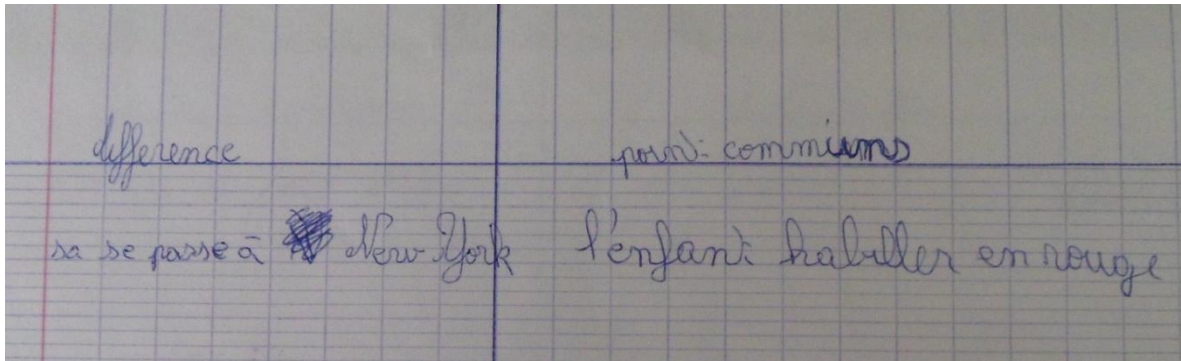 difference
point commiums
sa se passe à New York
l'enfant habiller en rouge